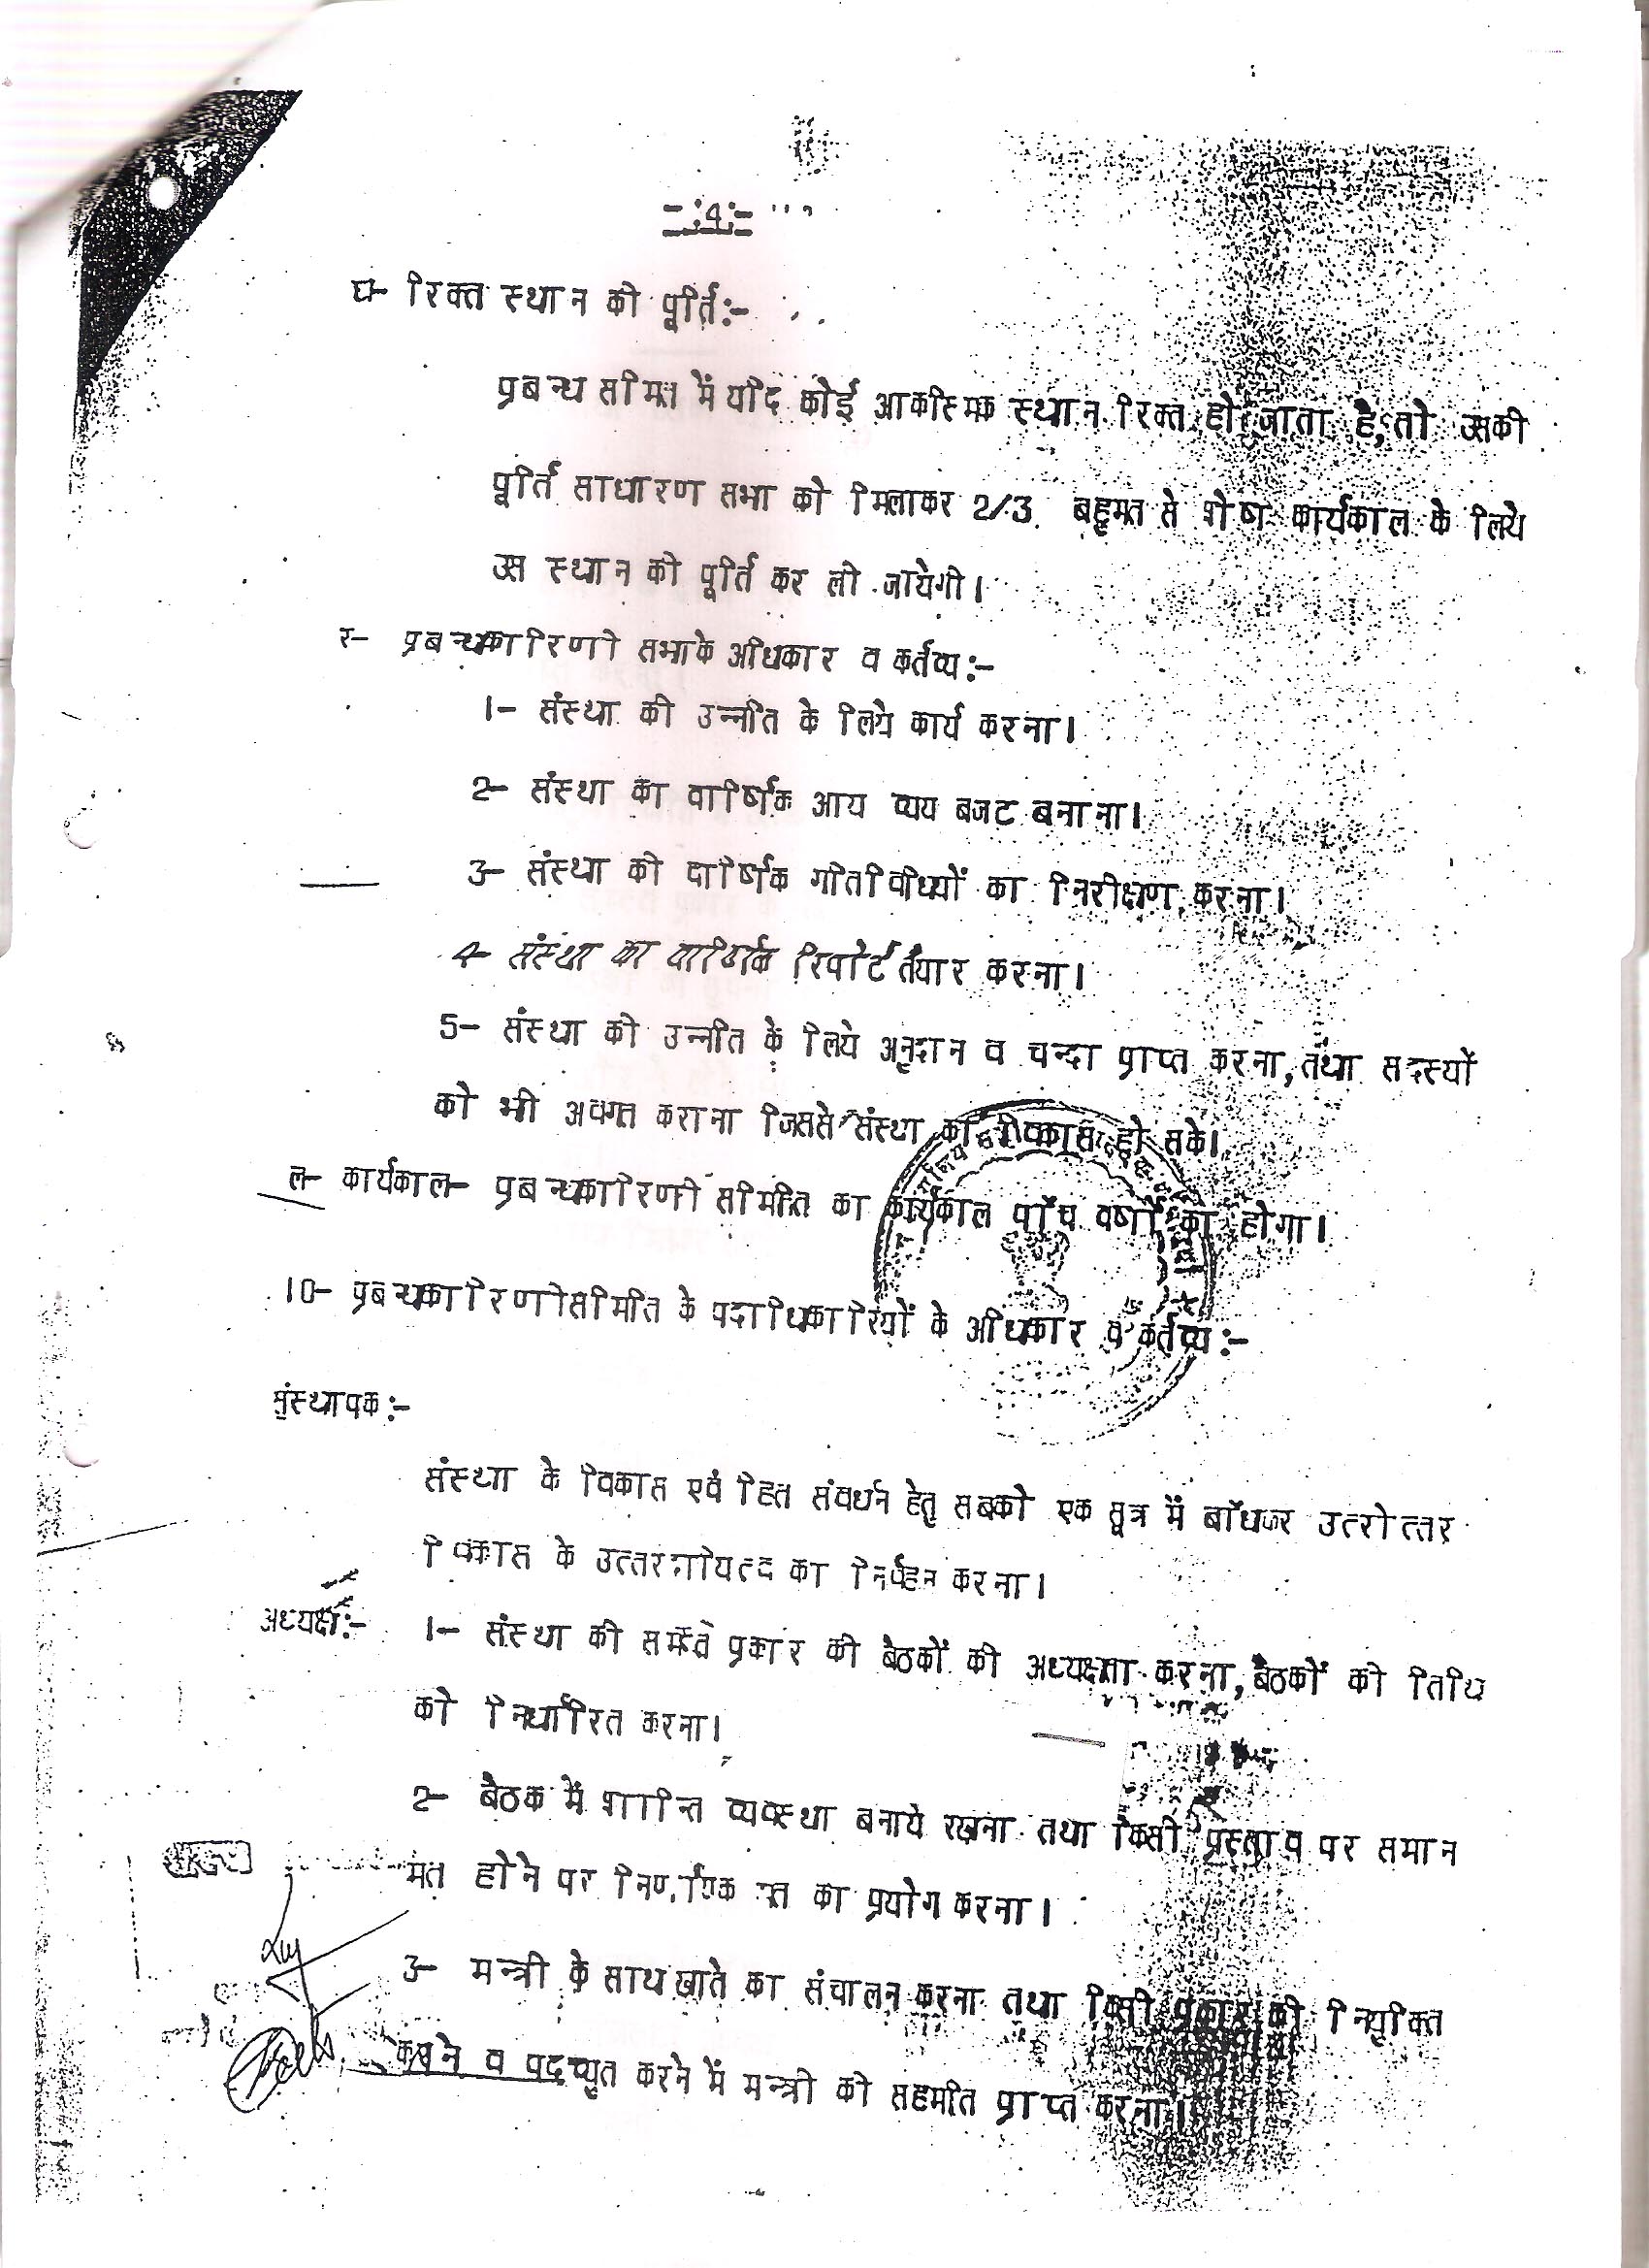 -:4:-
घ- रिक्त स्थान की पूर्ति:-
प्रबन्ध समिति में यदि कोई आकस्मिक स्थान रिक्त हो जाता है, तो उसकी
पूर्ति साधारण सभा को मिलाकर 2/3 बहुमत से शेष कार्यकाल के लिये
उस स्थान की पूर्ति कर ली जायेगी।
र- प्रबन्धकारिणी सभा के अधिकार व कर्तव्य:-
1- संस्था की उन्नति के लिये कार्य करना।
2- संस्था का वार्षिक आय व्यय बजट बनाना।
3- संस्था की वार्षिक गतिविधियों का निरीक्षण करना।
4- संस्था का वार्षिक रिपोर्ट तैयार करना।
5- संस्था की उन्नति के लिये अनुदान व चन्दा प्राप्त करना, तथा सदस्यों
को भी अवगत कराना जिससे संस्था का विकास हो सके।
ल- कार्यकाल- प्रबन्धकारिणी समिति का कार्यकाल पाँच वर्षों का होगा।
10- प्रबन्धकारिणी समिति के पदाधिकारियों के अधिकार व कर्तव्य:-
संस्थापक:-
संस्था के विकास एवं हित संवर्धन हेतु सबको एक सूत्र में बाँधकर उत्तरोत्तर
विकास के उत्तरदायित्व का निर्वहन करना।
अध्यक्ष:- 1- संस्था की समस्त प्रकार की बैठकों की अध्यक्षता करना, बैठकों की तिथि
को निर्धारित करना।
2- बैठक में शान्ति व्यवस्था बनाये रखना तथा किसी प्रस्ताव पर समान
मत होने पर निर्णायक मत का प्रयोग करना।
3- मन्त्री के साथ खाते का संचालन करना तथा किसी प्रकार की नियुक्ति
करने व पदच्युत करने में मन्त्री की सहमति प्राप्त करना।